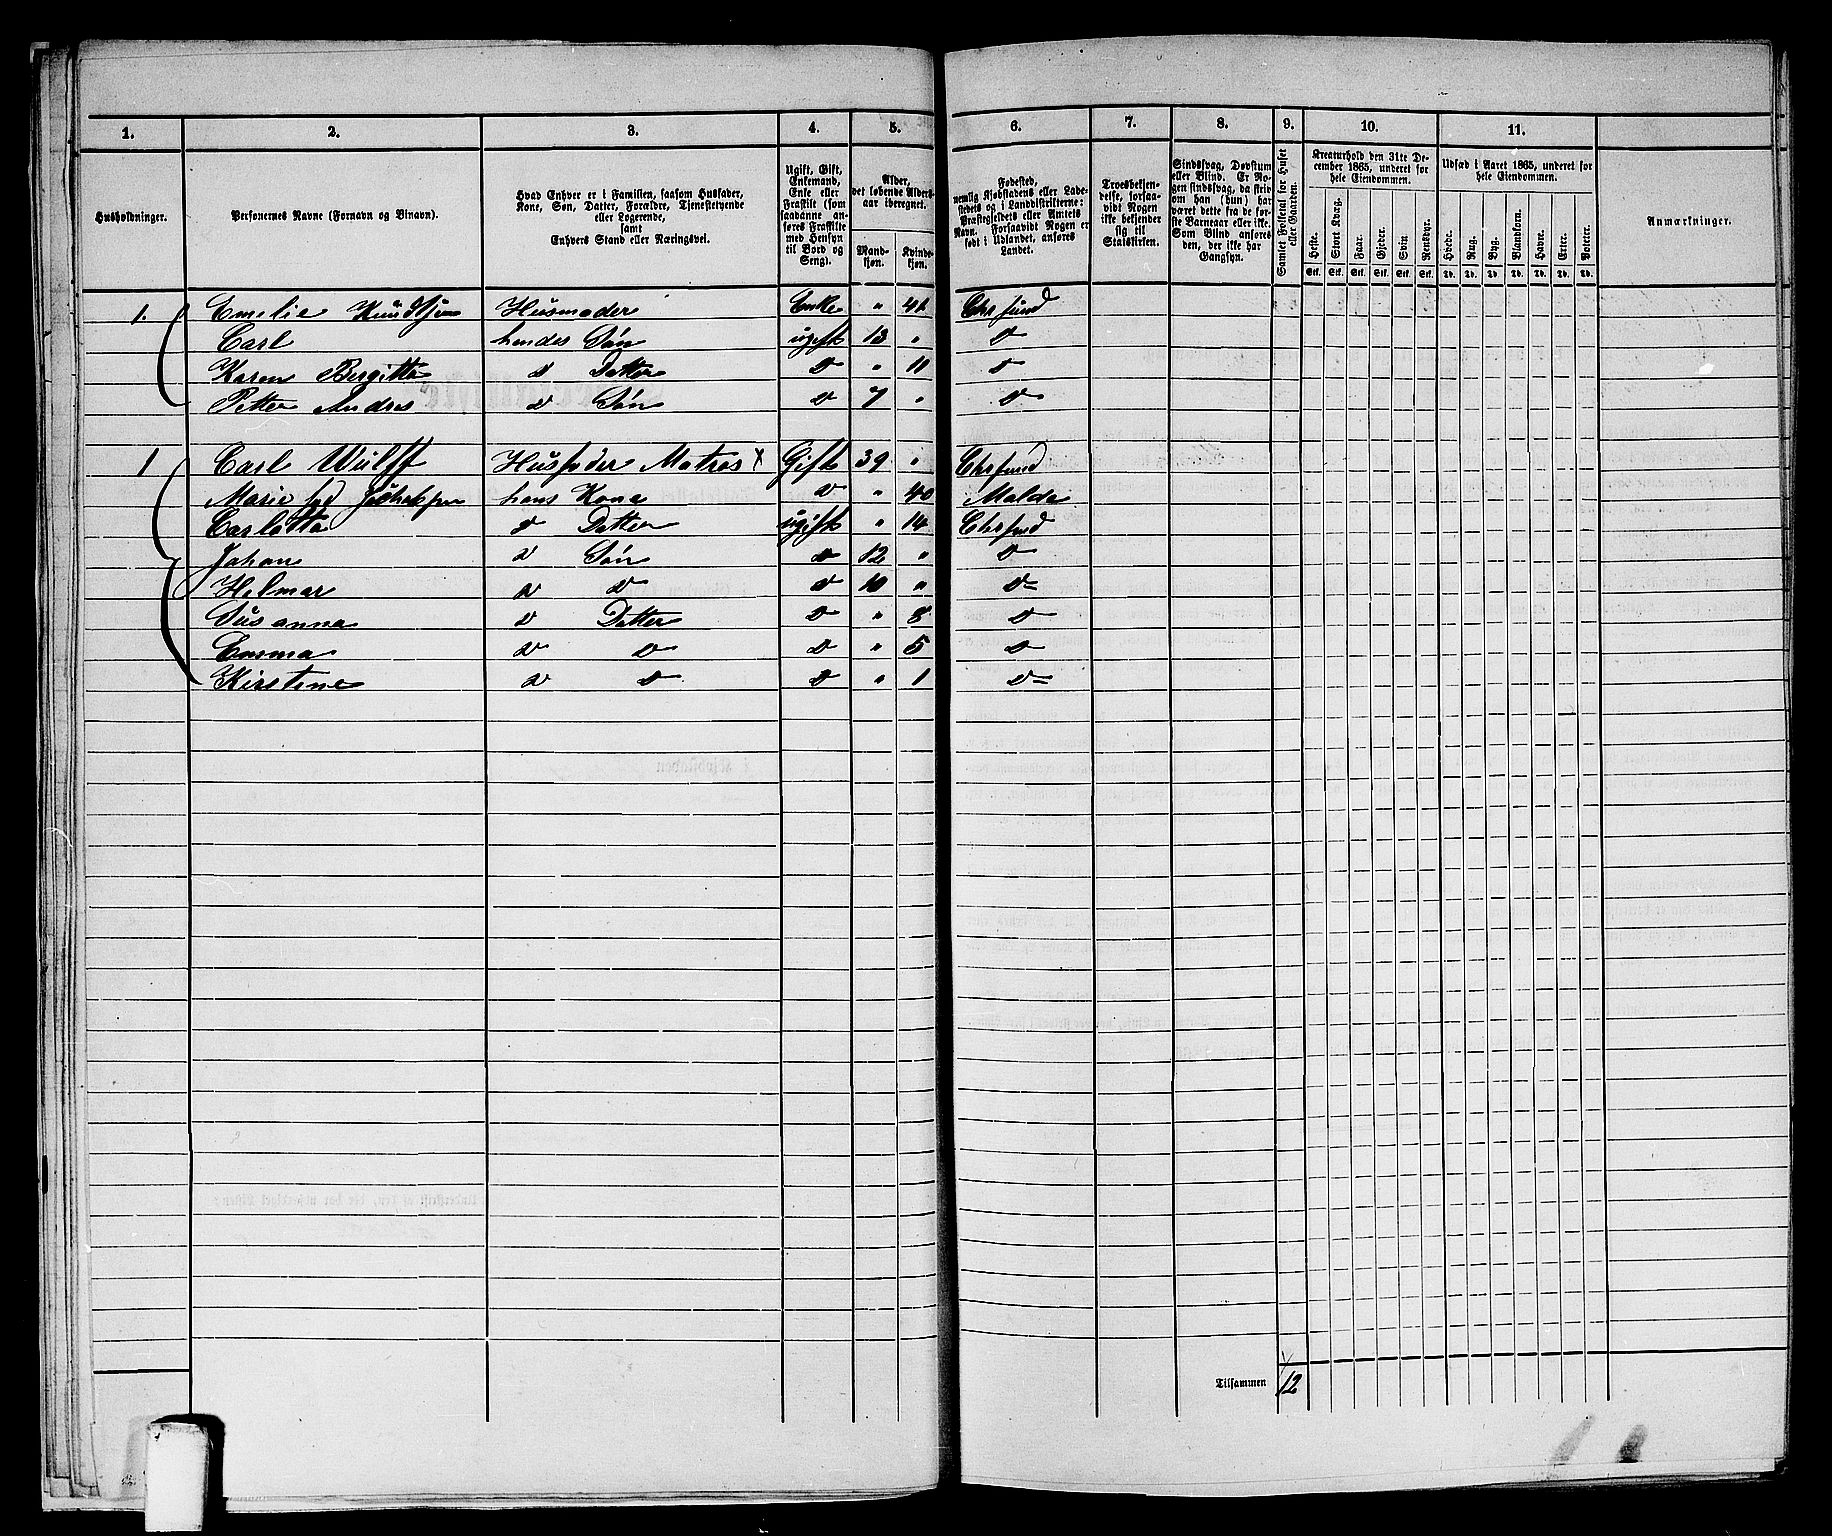 1. 2. 3. 4. 5. 6. 7. 8. 9. 10. 11.
Husholdninger.
Personernes Navne (Fornavn og Binavn).
Hvad Enhver er i Familien, saasom Husfader,
Kone, Søn, Datter, Forældre, Tjenestetyende
eller Logerende,
samt
Enhvers Stand eller Næringsvei.
Ugift, Gift,
Enkemand,
Enke eller
Fraskilt (som
saadanne an-
føres Fraskilte
med Hensyn
til Bord og
Seng).
Alder,
det løbende Alders-
aar iberegnet.
Mand-
kjøn.
Kvinde-
kjøn.
Fødested,
nemlig Kjøbstadens eller Lade-
stedets og i Landdistrikterne:
Præstegjeldets eller Amtets
Navn. Forsaavidt Nogen er
født i Udlandet, anføres
Landet.
Troesbekjen-
delse, forsaa-
vidt Nogen
ikke bekjender
sig til
Statskirken.
Sindssvag, Døvstum
eller Blind. Er No-
gen sindssvag, da skriv
om han (hun) har
været dette fra de før-
ste Barneaar eller ikke.
Som Blind anføres
den, der ikke har
Gangsyn.
Samlet Folketal for Huset
eller Gaarden.
Kreaturhold den 31te De-
cember 1865, underet for
hele Eiendommen.
Heste. Stort Kvæg. Faar. Gjeder. Svin Rensdyr.
Stk. Stk. Stk. Stk. Stk. Stk.
Udsæd i Aaret 1865, underet for
hele Eiendommen.
Hvede. Rug. Byg. Blandkorn. Havre. Erter. Poteter.
Td. Td. Td. Td. Td. Td. Td.
Anmærkninger.
1. Emilie Knudtsen Husmoder Enke " 41 Chrsund
Carl hendes Søn ugift 13 " D
Karen Bergitta D Datter D " 11 D
Petter Andres D Søn D 7 " D
1 Carl Wulff Husfader Matros X Gift 39 " Chrsund
Marie hans Kone D " 40 Molde
Carlotta D Datter ugift " 14 Chrsund
Johan D Søn D 12 " D
Helmar D D D 10 " D
Susanna D Datter D " 8 D
Emma D D D " 5 D
Kirstine D D D " 1 D
Tilsammen 12